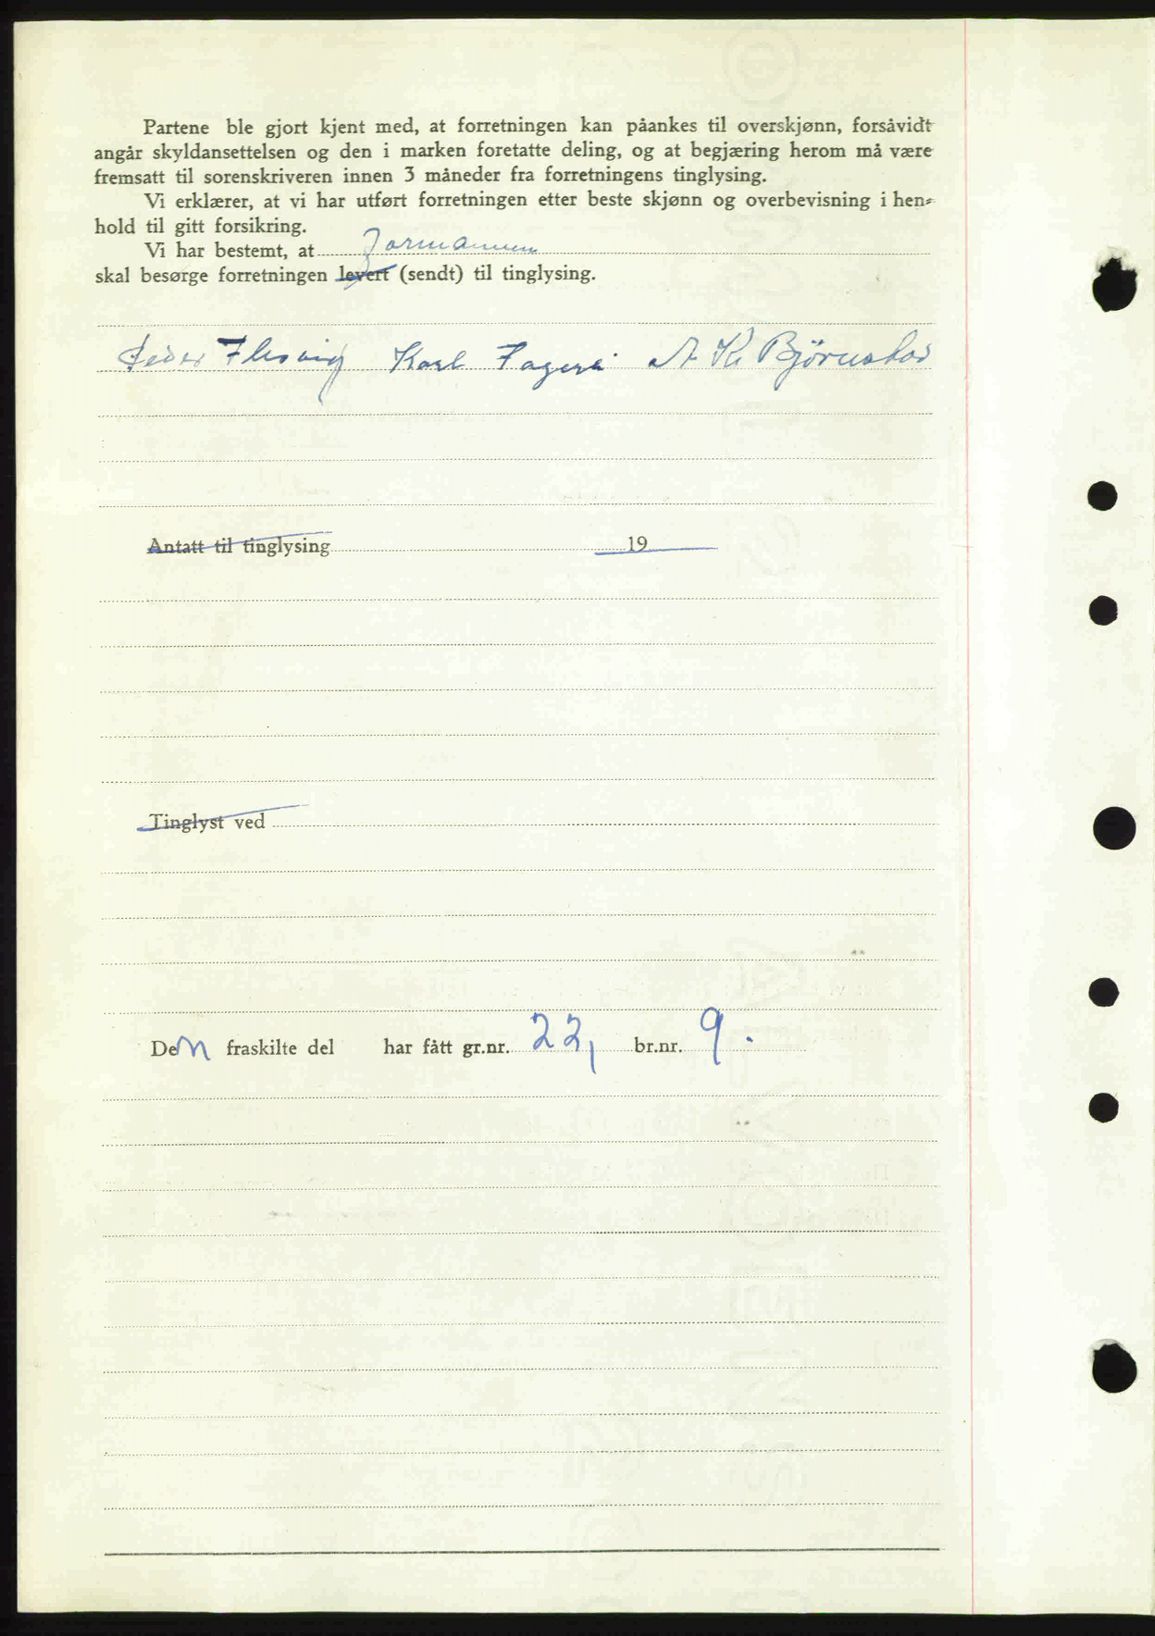 Partene ble gjort kjent med, at forretningen kan påankes til overskjønn, forsåvidt
angår skyldansettelsen og den i marken foretatte deling, og at begjæring herom må være
fremsatt til sorenskriveren innen 3 måneder fra forretningens tinglysing.
Vi erklærer, at vi har utført forretningen etter beste skjønn og overbevisning i hen-
hold til gitt forsikring.
Vi har bestemt, at formannen
skal besørge forretningen levert (sendt) til tinglysing.
Karl A. K. Bjørnstad
Antatt til tinglysing 19
Tinglyst ved
Den fraskilte del har fått gr.nr. 22, br.nr. 9.